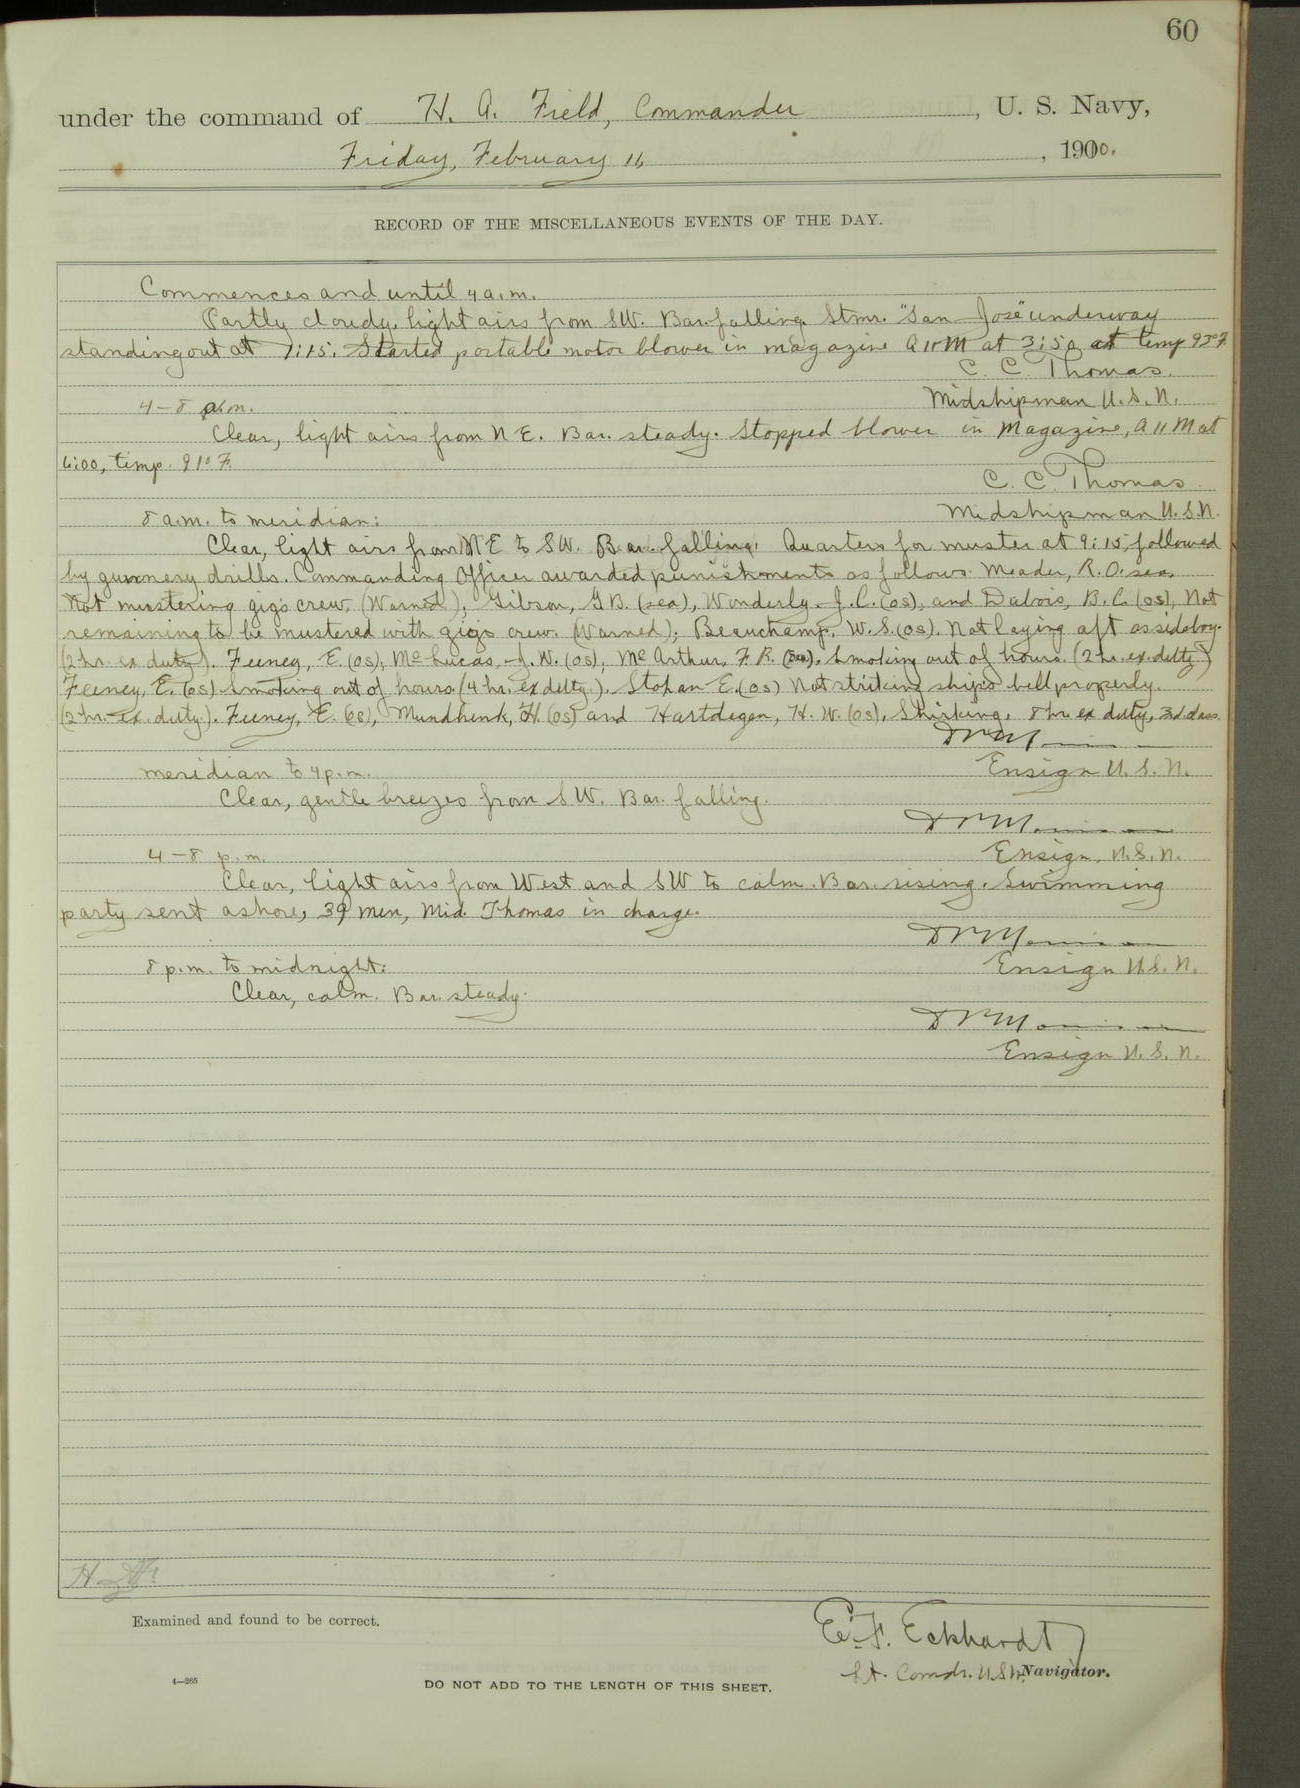 60
under the command of H. A. Field, Commander, U. S. Navy,
Friday, February 16, 1900.
RECORD OF THE MISCELLANEOUS EVENTS OF THE DAY.
Commences and until 4 a.m.
Partly cloudy, light airs from SW. Bar. falling. Stmr. "San José" underway
standing out at 1:15. Started portable motor blower in magazine A 11 M at 3:50 at temp 92° F
C. C. Thomas.
Midshipman U.S.N.
4-8 a.m.
Clear, light airs from NE. Bar. steady. Stopped blower in Magazine, A 11 M at
6:00, temp. 91° F.
C. C. Thomas
Midshipman U.S.N.
8 a.m. to meridian:
Clear, light airs from NE to SW. Bar. falling. Quarters for muster at 9:15 followed
by gunnery drills. Commanding Officer awarded punishments as follows: Meader, R.O. sea.
Not mustering gig's crew, (Warned), Gibson, G B. (sea), Wonderly J.C. (os), and Dalvois, B.C. (os), Not
remaining to be mustered with gig's crew. (Warned); Beauchamp, W.S. (os). Not laying aft as sideboy.
(2 hr. ex duty). Feeney, E. (os), McLucas, J. W. (os), McArthur, F. R. (sea), Smoking out of hours. (2 hr. ex. duty)
Feeney, E. (os) Smoking out of hours (4 hr. ex duty.). Stohan E. (os) Not striking ship's bell properly.
(2 hr. ex. duty.). Feeney, E. (os), Mundhenk, H. (os) and Hartdegen, H. W. (os), Shirking, 8 hr ex duty, 3rd class.
Ensign U.S.N.
meridian to 4 p.m.
Clear, gentle breezes from SW. Bar. falling.
Ensign, U.S.N.
4-8 p.m.
Clear, light airs from West and SW to calm. Bar. rising. Swimming
party sent ashore, 39 men, Mid. Thomas in charge.
Ensign U.S.N.
8 p.m. to midnight:
Clear, calm. Bar. steady.
Ensign U.S.N.
Examined and found to be correct.
E. F. Eckhardt
Lt. Comdr. U.S.N. Navigator.
4—265
DO NOT ADD TO THE LENGTH OF THIS SHEET.